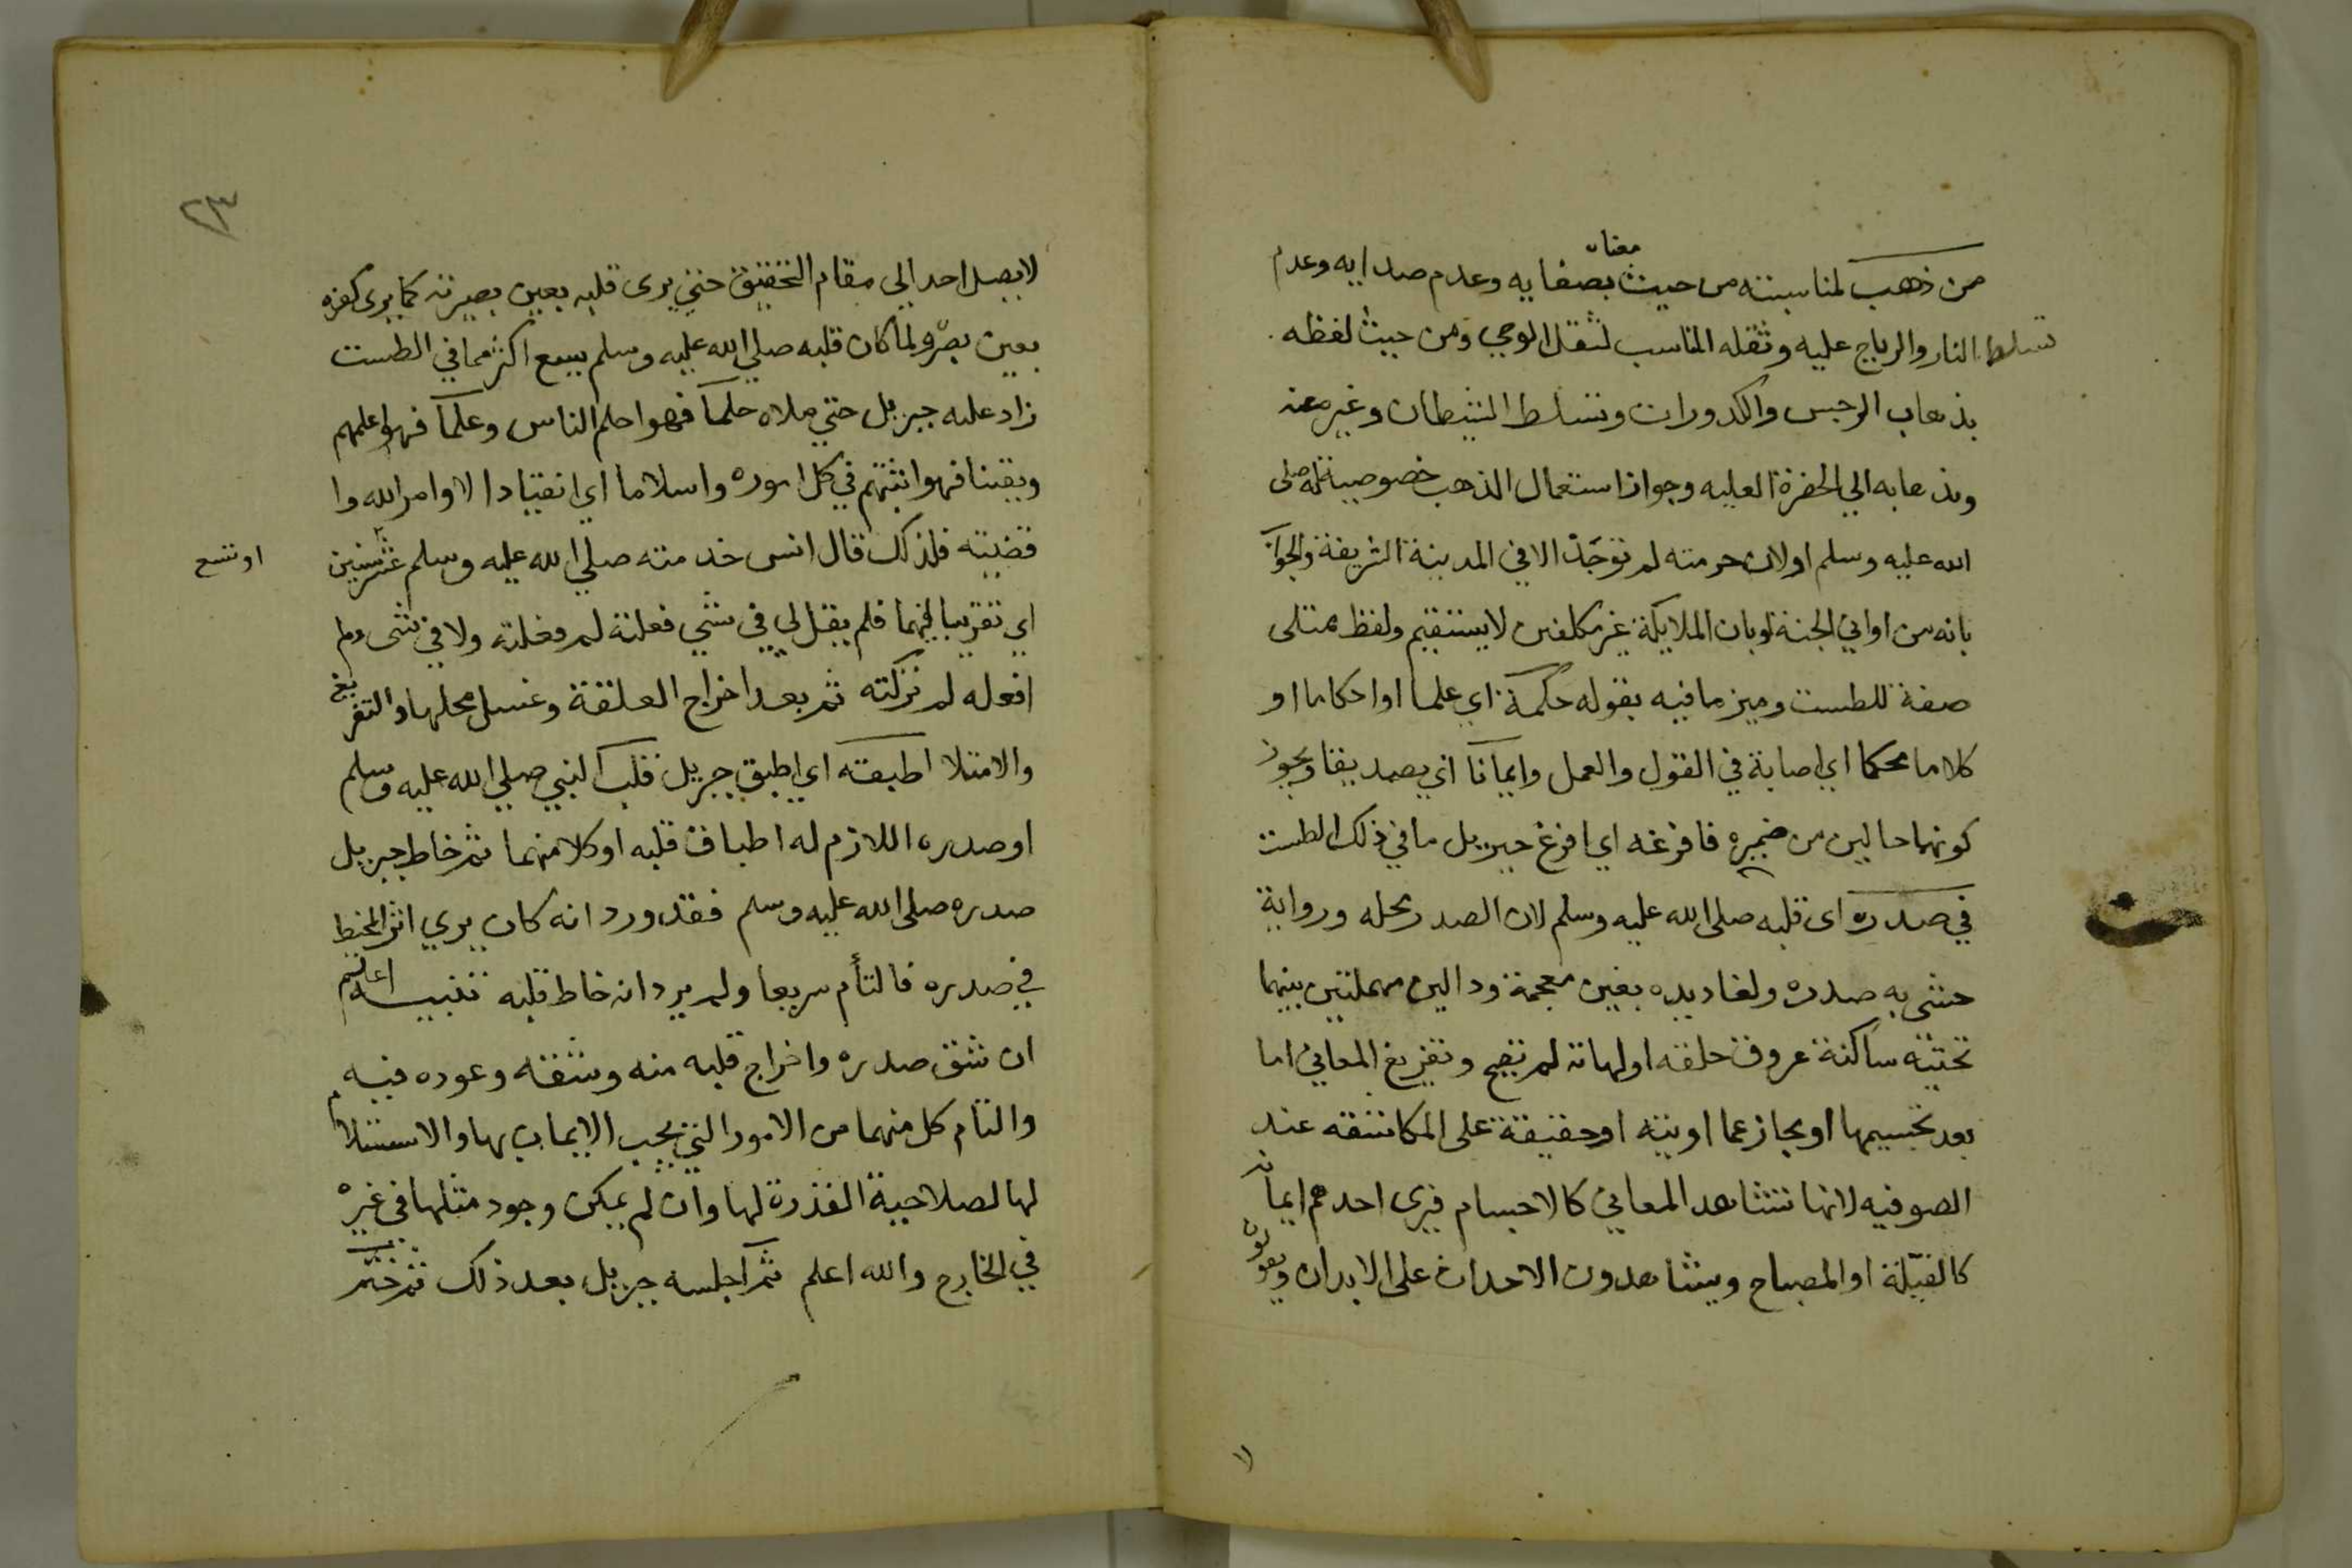 من ذهب لمناسبته من حيث معناه بصفايه وعدم صدايه وعدم
تسلط النار والرياح عليه وثقله المناسب لثقل الوحي ومن حيث لفظه
بذهاب الرجس والكدورات وتسلط الشيطان وغيره عنه
وبذهابه الي الحضرة العليه وجواز استعمال الذهب خصوصية له صلى
الله عليه وسلم اولان حرمته لم توجد الا في المدينة الشريفة والجواب
بانه من اواني الجنة اوبان الملايكة غير مكلفين لا يستقيم ولفظ ممتلى
صفة للطست وميز ما فيه بقوله حكمة اي علما اواحكاما او
كلاما محكما اي اصابة في القول والعمل وايمانا اي تصديقا ويجوز
كونهما حالين من ضميره فافرغه اي افرغ جبريل ما في ذلك الطست
في صدره اى قلبه صلى الله عليه وسلم لان الصدر محله ورواية
حشى به صدره ولغاديده بغين معجمة ودالين مهملتين بينهما
تحتية ساكنة عروق حلقه اولهاته لم تصح وتفريغ المعاني اما
بعد تجسيمها او مجاز عما اوتيه اوحقيقة على المكاشفه عند
الصوفيه لانها تشاهد المعاني كالاجسام فيرى احدهم ايمانه
كالفتيلة او المصباح ويشاهدون الاحداث على الابدان ويقولون
٢٣
لا يصل احد الي مقام التحقيق حتي يرى قلبه بعين بصيرته كما يرى كفه
بعين بصره ولما كان قلبه صلي الله عليه وسلم يسع اكثر مما في الطست
زاد عليه جبريل حتي ملاه حلما فهو احلم الناس وعلما فهو اعلمهم
ويقينا فهو اثبتهم في كل اموره واسلاما اي انقيادا لاوامر الله وا
قضيته فلذلك قال انس خدمته صلي الله عليه وسلم عشر سنين
اوتسع
اي تقريبا فيهما فلم يقل لي في شي فعلته لم فعلته ولا في شى ولم
افعله لم تركته ثم بعد اخراج العلقة وغسل محلها والتفريغ
والامتلا اطبقته اي اطبق جبريل قلب النبي صلي الله عليه وسلم
اوصدره اللازم له اطباق قلبه اوكلا منهما ثم خاط جبريل
صدره صلى الله عليه وسلم فقد ورد انه كان يري اثر المخيط
في صدره فالتأم سريعا ولم يرد انه خاط قلبه تنبيه اعلم
ان شق صدره واخراج قلبه منه وشقه وعوده فيه
والتام كل منهما من الامور التي يجب الايمان بها والاستسلام
لها لصلاحية القدرة لها وان لم يمكن وجود مثلها في غيره
في الخارج والله اعلم ثم اجلسه جبريل بعد ذلك ثم ختم